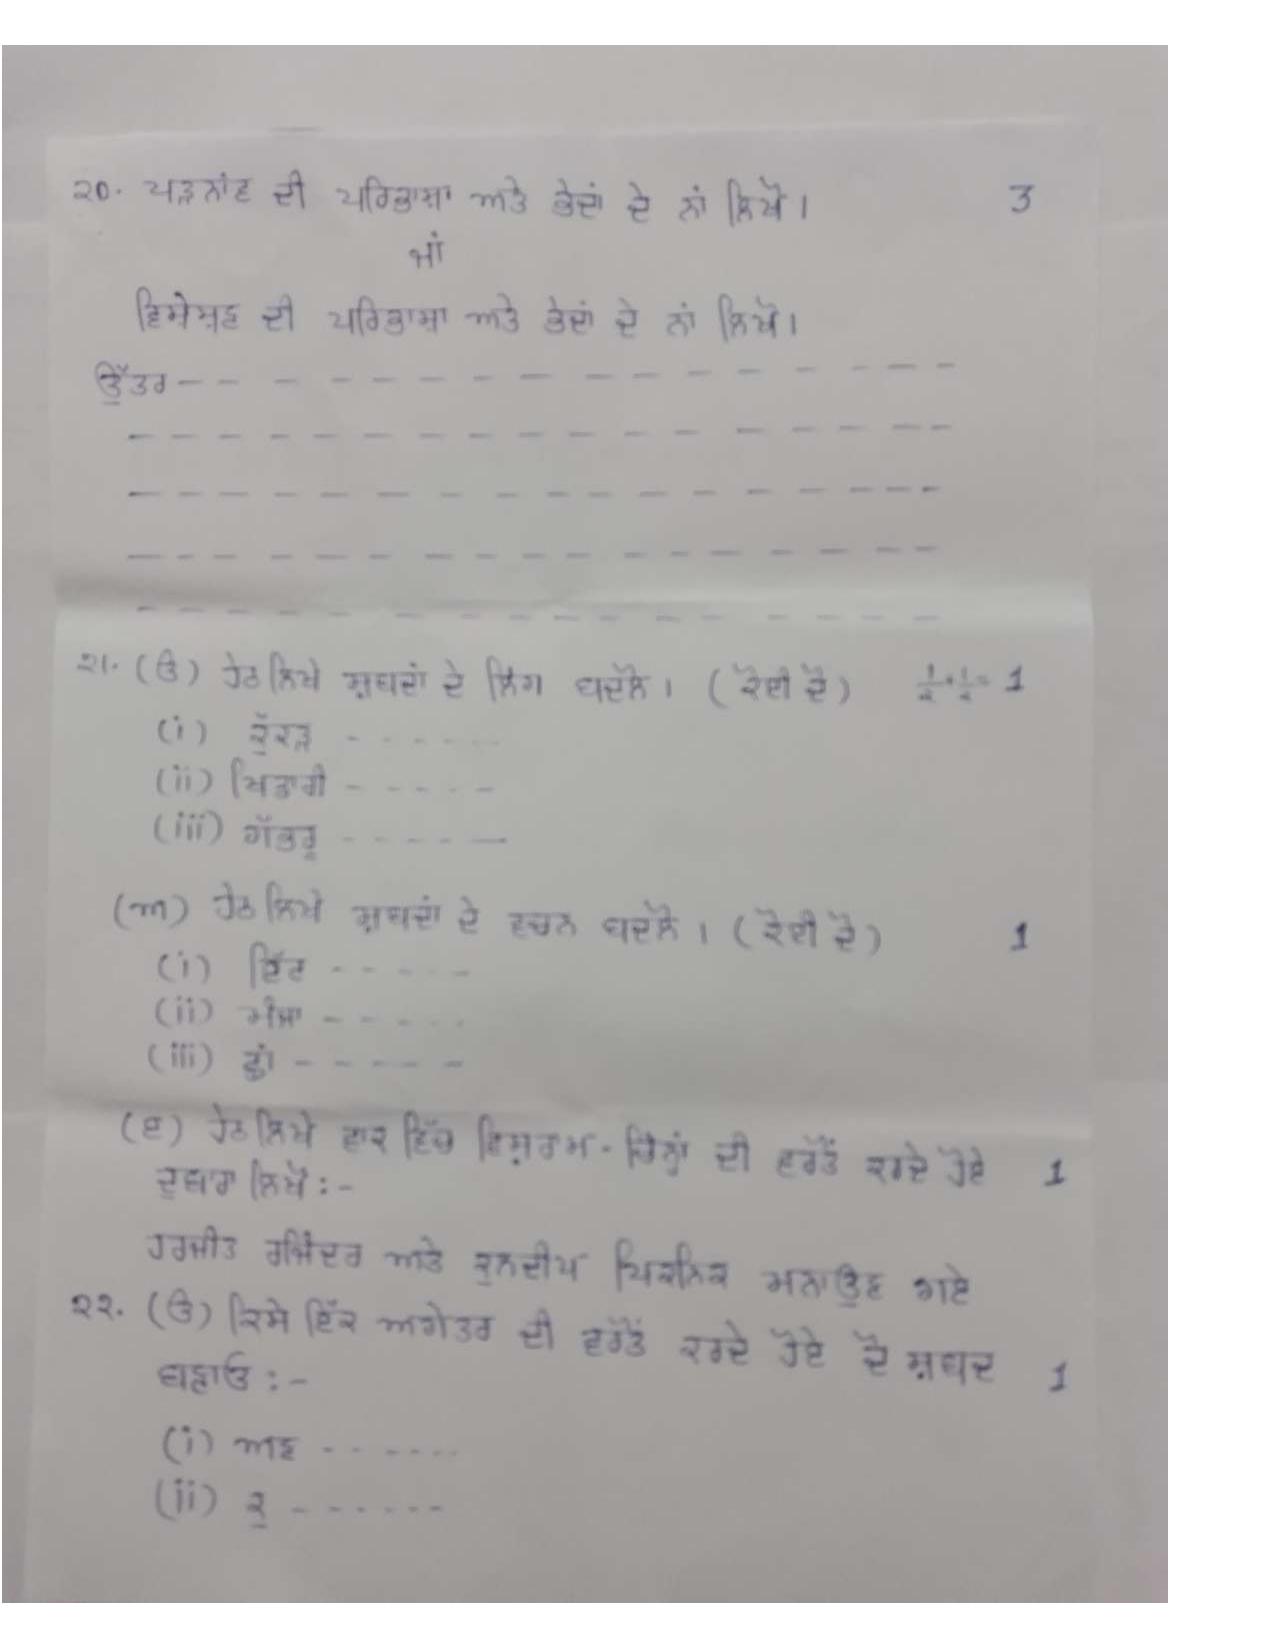 ੨੦. ਪੜਨਾਂਵ ਦੀ ਪਰਿਭਾਸ਼ਾ ਅਤੇ ਭੇਦਾਂ ਦੇ ਨਾਂ ਲਿਖੋ। 3
ਜਾਂ
ਵਿਸ਼ੇਸ਼ਣ ਦੀ ਪਰਿਭਾਸ਼ਾ ਅਤੇ ਭੇਦਾਂ ਦੇ ਨਾਂ ਲਿਖੋ।
ਉੱਤਰ - - - - - - - - - - - - - - - -
- - - - - - - - - - - - - - - -
- - - - - - - - - - - - - - - -
- - - - - - - - - - - - - - - -
- - - - - - - - - - - - - - - -
੨1. (ੳ) ਹੇਠ ਲਿਖੇ ਸ਼ਬਦਾਂ ਦੇ ਲਿੰਗ ਬਦਲੋ। (ਕੋਈ ਦੋ) ½+½= 1
(i) ਕੁੱਕੜ - - - - - -
(ii) ਖਿਡਾਰੀ - - - - -
(iii) ਗੱਭਰੂ - - - - - -
(ਅ) ਹੇਠ ਲਿਖੇ ਸ਼ਬਦਾਂ ਦੇ ਵਚਨ ਬਦਲੋ। (ਕੋਈ ਦੋ) 1
(i) ਇੱਟ - - - - -
(ii) ਮੰਜਾ - - - - -
(iii) ਛਾਂ - - - - - -
(ੲ) ਹੇਠ ਲਿਖੇ ਵਾਕ ਵਿੱਚ ਵਿਸ਼ਰਾਮ-ਚਿੰਨ੍ਹਾਂ ਦੀ ਵਰਤੋਂ ਕਰਦੇ ਹੋਏ 1
ਦੁਬਾਰਾ ਲਿਖੋ :-
ਹਰਜੀਤ ਰਜਿੰਦਰ ਅਤੇ ਕੁਲਦੀਪ ਪਿਕਨਿਕ ਮਨਾਉਣ ਗਏ
੨੨. (ੳ) ਕਿਸੇ ਇੱਕ ਅਗੇਤਰ ਦੀ ਵਰਤੋਂ ਕਰਦੇ ਹੋਏ ਦੋ ਸ਼ਬਦ
ਬਣਾਓ :- 1
(i) ਅਣ - - - - - - -
(ii) ਕੁ - - - - - - -